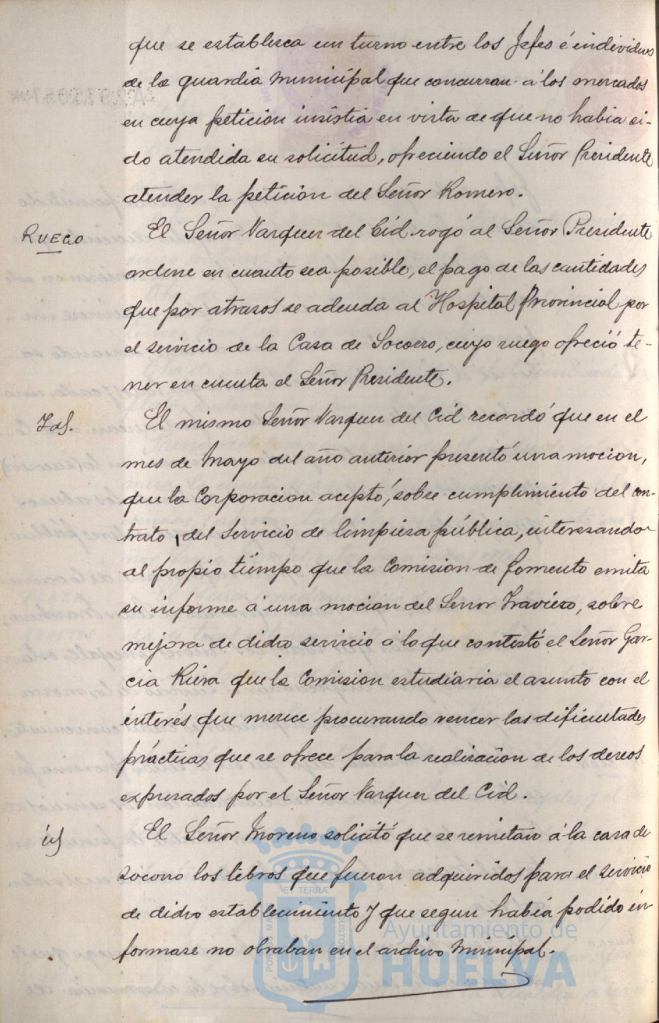 que se establezca un turno entre los Jefes é individuos
de la guardia municipal que concurran á los mercados
en cuya peticion insistia en vista de que no habia si-
do atendida su solicitud, ofreciendo el Señor Presidente
atender la peticion del Señor Romero.
RUEGO
El Señor Vazquez del Cid rogó al Señor Presidente
ordene en cuanto sea posible, el pago de las cantidades
que por atrasos se adeuda al Hospital Provincial por
el servicio de la Casa de Socorro, cuyo ruego ofreció te-
ner en cuenta el Señor Presidente.
Id.
El mismo Señor Vazquez del Cid recordó que en el
mes de Mayo del año anterior presentó una mocion,
que la Corporacion aceptó, sobre cumplimiento del con-
trato, del Servicio de limpieza pública, interesando
al propio tiempo que la Comision de fomento emita
su informe á una mocion del Señor Traviezo, sobre
mejora de dicho servicio á lo que contestó el Señor Gar-
cia Riera que la Comision estudiaria el asunto con el
interés que merece procurando vencer las dificultades
prácticas que se ofrece para la realizacion de los deseos
expresados por el Señor Vazquez del Cid.
id
El Señor Moreno solicitó que se remitan á la casa de
socorro los libros que fueron adquiridos para el servicio
de dicho establecimiento y que segun habia podido in-
formarse no obraban en el archivo Municipal.
Ayuntamiento de
HUELVA